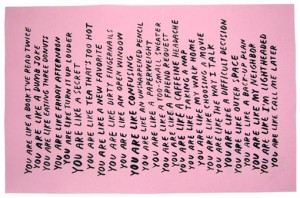 YOU ARE LIKE A BOOK I'VE READ TWICE
YOU ARE LIKE A DUMB JOKE
YOU ARE LIKE EATING THREE DONUTS
YOU ARE LIKE FRIDAY AFTERNOON
YOU ARE LIKE TURN IT UP LOUDER
YOU ARE LIKE A SECRET
YOU ARE LIKE TEA THAT'S TOO HOT
YOU ARE LIKE A NEW FAVORITE
YOU ARE LIKE DIRTY FINGERNAILS
YOU ARE LIKE AN OPEN WINDOW
YOU ARE LIKE COMING
YOU ARE LIKE PENCIL
YOU ARE LIKE A PAPERWEIGHT
YOU ARE LIKE A TOO-SMALL SWEATER
YOU ARE LIKE A FRIEND REQUEST
YOU ARE LIKE A CAFFEINE HEADACHE
YOU ARE LIKE TAKING A NAP
YOU ARE LIKE MY WALK HOME
YOU ARE LIKE CHOOSING A MOVIE
YOU ARE LIKE THE WAY I TALK
YOU ARE LIKE A DIFFICULT DECISION
YOU ARE LIKE OUTER SPACE
YOU ARE LIKE A BACK-UP PLAN
YOU ARE LIKE MY NEIGHBOR
YOU ARE LIKE I'M LIGHTHEADED
YOU ARE LIKE CALL ME LATER